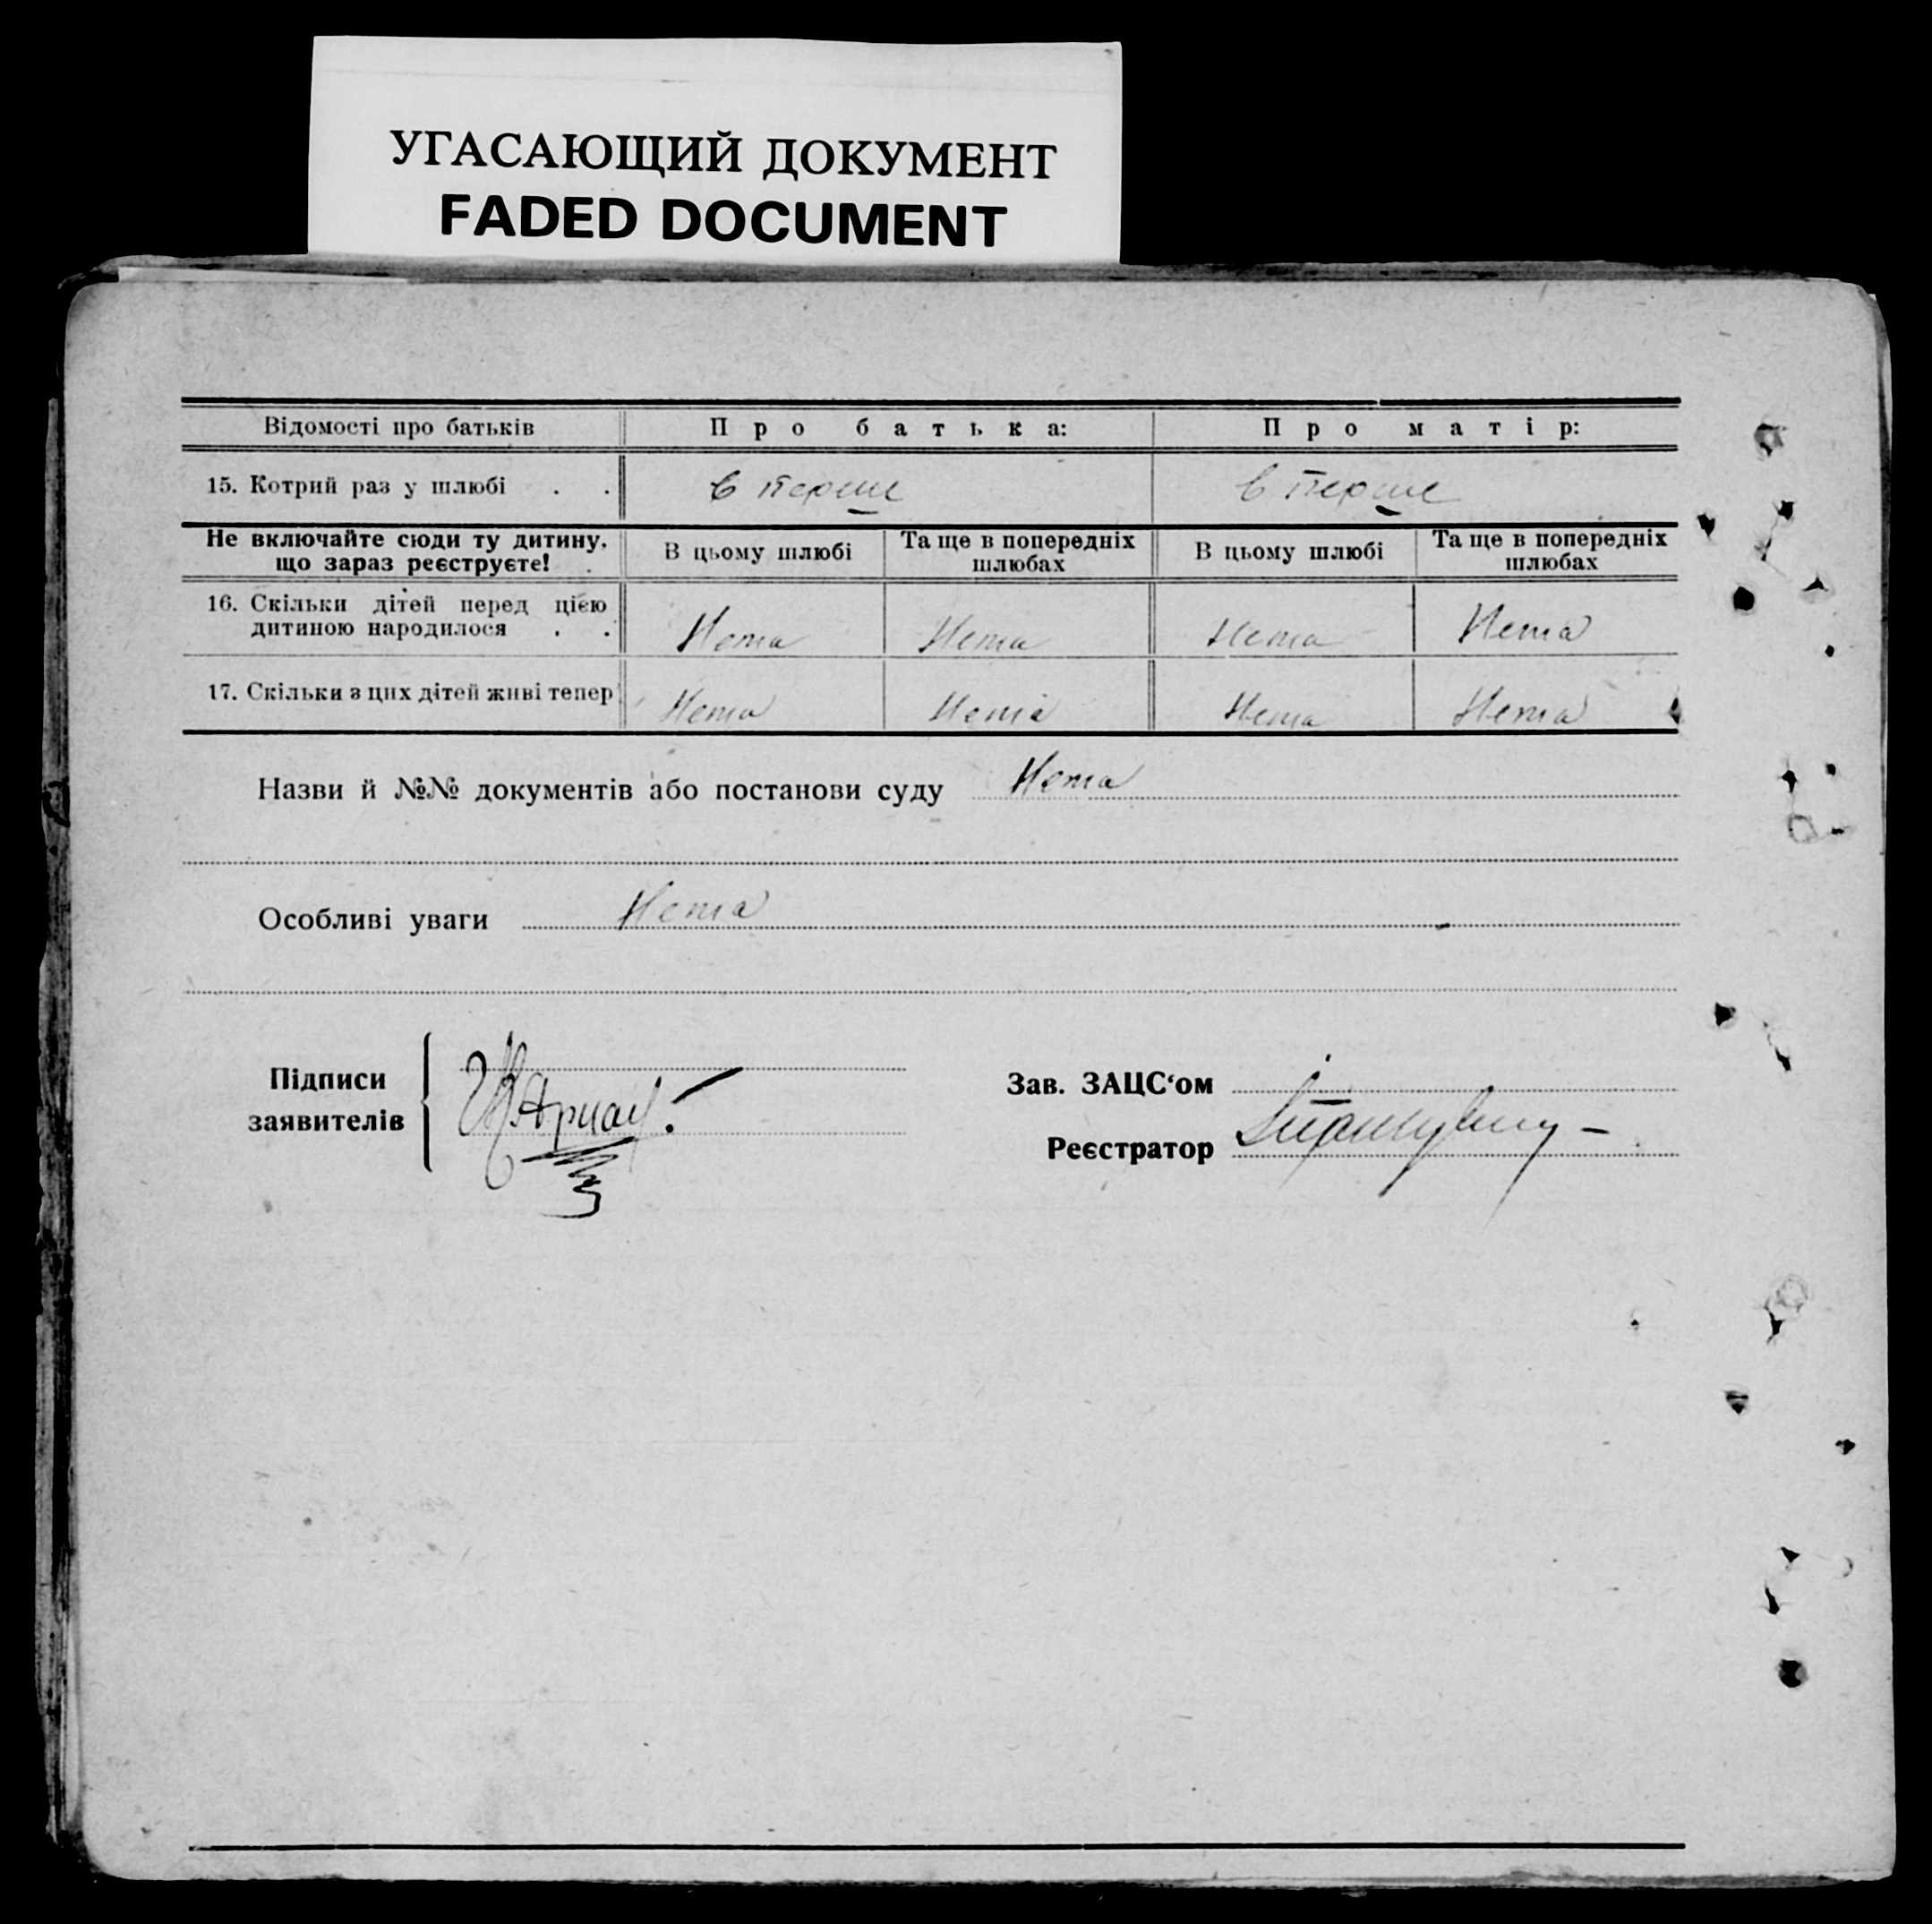 УГАСАЮЩИЙ ДОКУМЕНТ
FADED DOCUMENT
Відомості про батьків Про батька: Про матір:
15. Котрий раз у шлюбі . . в перше в перше
Не включайте сюди ту дитину, В цьому шлюбі Та ще в попередніх В цьому шлюбі Та ще в попередніх
що зараз реєструєте! шлюбах шлюбах
16. Скільки дітей перед цією
дитиною народилося . . Нема Нема Нема Нема
17. Скільки з цих дітей живі тепер Нема Нема Нема Нема
Назви й №№ документів або постанови суду Нема
Особливі уваги Нема
Підписи
заявителів
Зав. ЗАЦС‘ом
Реєстратор